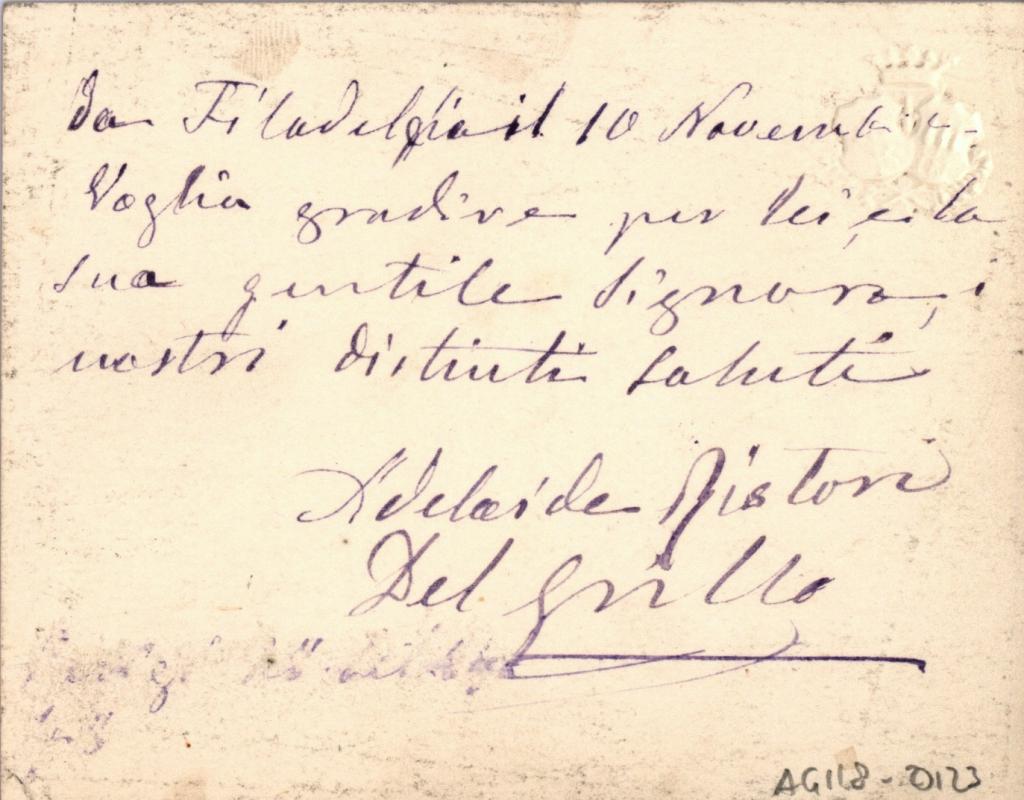 da Filadelfia il 10 Novembre -
Voglia gradire per Lei, e la
sua gentile Signora, i
nostri distinti saluti
Adelaide Ristori
Del Grillo
AG118-0123